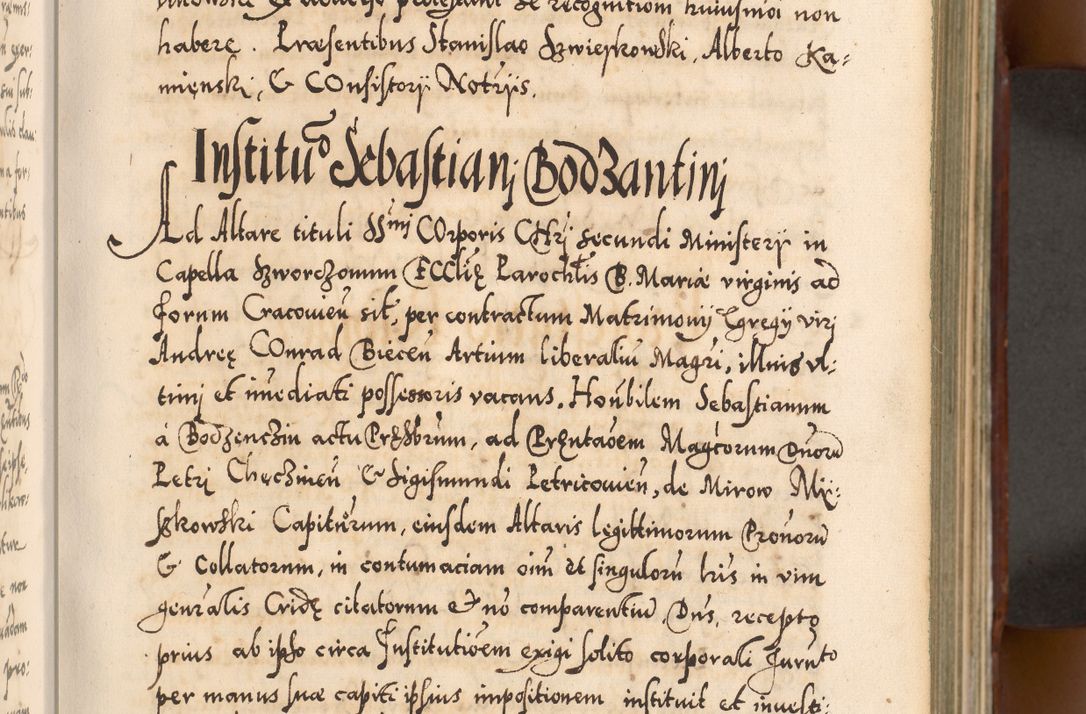 habere. Præsentibus Stanislao Szwięykowski, Alberto Ka-
mięnski, & COnsistorÿ Notrÿs.
Institu͠o Sebastianj Bodzantinj
Ad Altare tituli SSmi COrporis CHrj secundi Ministerÿ in
Capella Szworczonum ECClię Parochlis B. Mariæ virginis ad
forum Cracouieu sit, per contractum Matrimonÿ Egregÿ virj
Andreę COnrad Biecen Artium liberaliu Magri, illius vl-
timj et imediati possessoris vacans. Honbilem Sebastianum
á Bodzenczin actu Prezbrum, ad Pręntaoem Magcorum Dnoru
Petrj Chęczineu & Sigismundi Petricouien, de Mirow Mÿ-
szkowski Capituorum, eiusdem Altaris legittimorum Pronoru
& Collatorum, in contumaciam oim et singuloru hris in vim
genralis Cridę citatorum et no comparentiu Dns, recepto
prius ab ipso circa Institutioem exigi solito corporali Juruto
per manus suæ capiti ipsius impositionem instituit et inuesti-